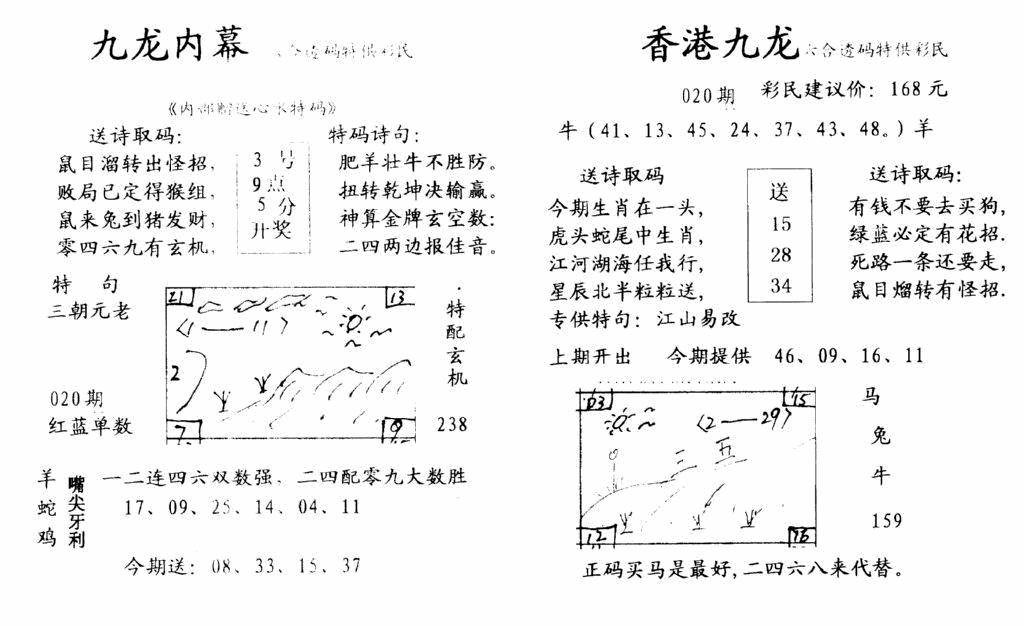 九龙内幕
六合透码特供彩民
《内部赠送心水特码》
送诗取码：
鼠目溜转出怪招，
败局已定得猴组，
鼠来兔到猪发财，
零四六九有玄机，
3 号
9点
5 分
开奖
特码诗句：
肥羊壮牛不胜防。
扭转乾坤决输赢。
神算金牌玄空数：
二四两边报佳音。
特 句
三朝元老
020期
红蓝单数
21
13
〈1——11〉
2
7
9
特配玄机
238
羊
蛇
鸡
嘴尖牙利
一二连四六双数强，二四配零九大数胜
17、09、25、14、04、11
今期送：08、33、15、37
香港九龙
六合透码特供彩民
020期
彩民建议价：168 元
牛（41、13、45、24、37、43、48。）羊
送诗取码
今期生肖在一头，
虎头蛇尾中生肖，
江河湖海任我行，
星辰北半粒粒送，
送
15
28
34
送诗取码：
有钱不要去买狗，
绿蓝必定有花招.
死路一条还要走，
鼠目熘转有怪招.
专供特句：江山易改
上期开出 今期提供 46、09、16、11
03
15
〈2——29〉
三 五
12
16
马
兔
牛
159
正码买马是最好，二四六八来代替。